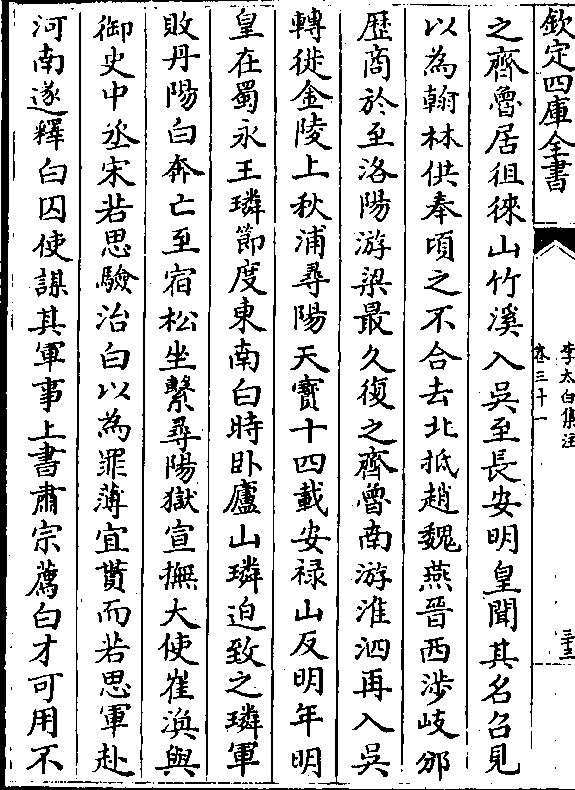 欽定四庫全書
李太白集注
卷三十一
三十三
之齊魯居徂徠山竹溪入吳至長安明皇聞其名召見
以為翰林供奉頃之不合去北抵趙魏燕晉西涉岐邠
歷商於至洛陽游梁最久復之齊魯南游淮泗再入吳
轉徙金陵上秋浦尋陽天寶十四載安禄山反明年明
皇在蜀永王璘節度東南白時卧廬山璘迫致之璘軍
敗丹陽白奔亡至宿松坐繫尋陽獄宣撫大使崔渙與
御史中丞宋若思驗治白以為罪薄宜貰而若思軍赴
河南遂釋白囚使謀其軍事上書肅宗薦白才可用不